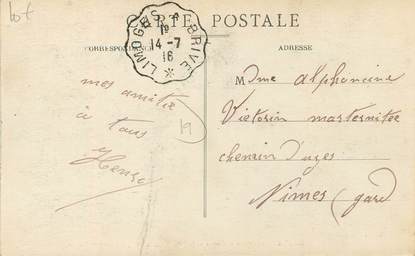 lot
CARTE POSTALE
LIMOGES A BRIVE
1º
14-7
16
CORRESPONDANCE
ADRESSE
mes amitiés
à tous
Henri
19
Mdme alphoncine
Victorin masternitre
chemin d'uzes
Nimes (gard)